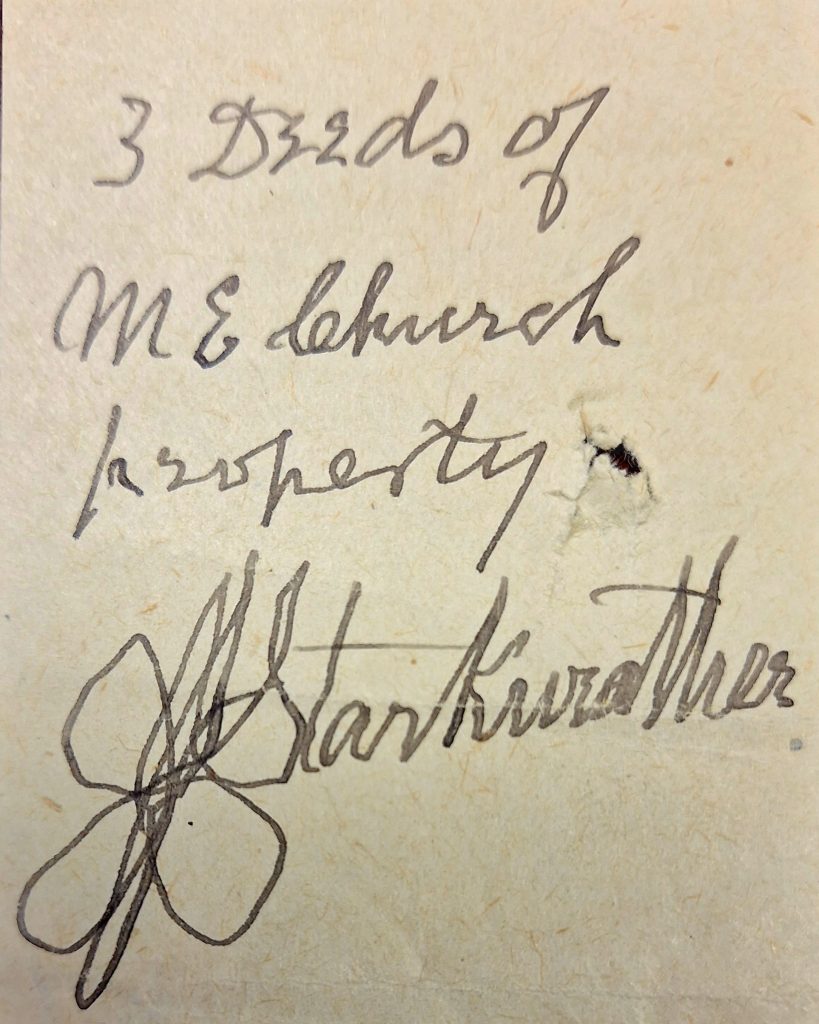 3 Deeds of
M E Church
property
JJ Starkweather